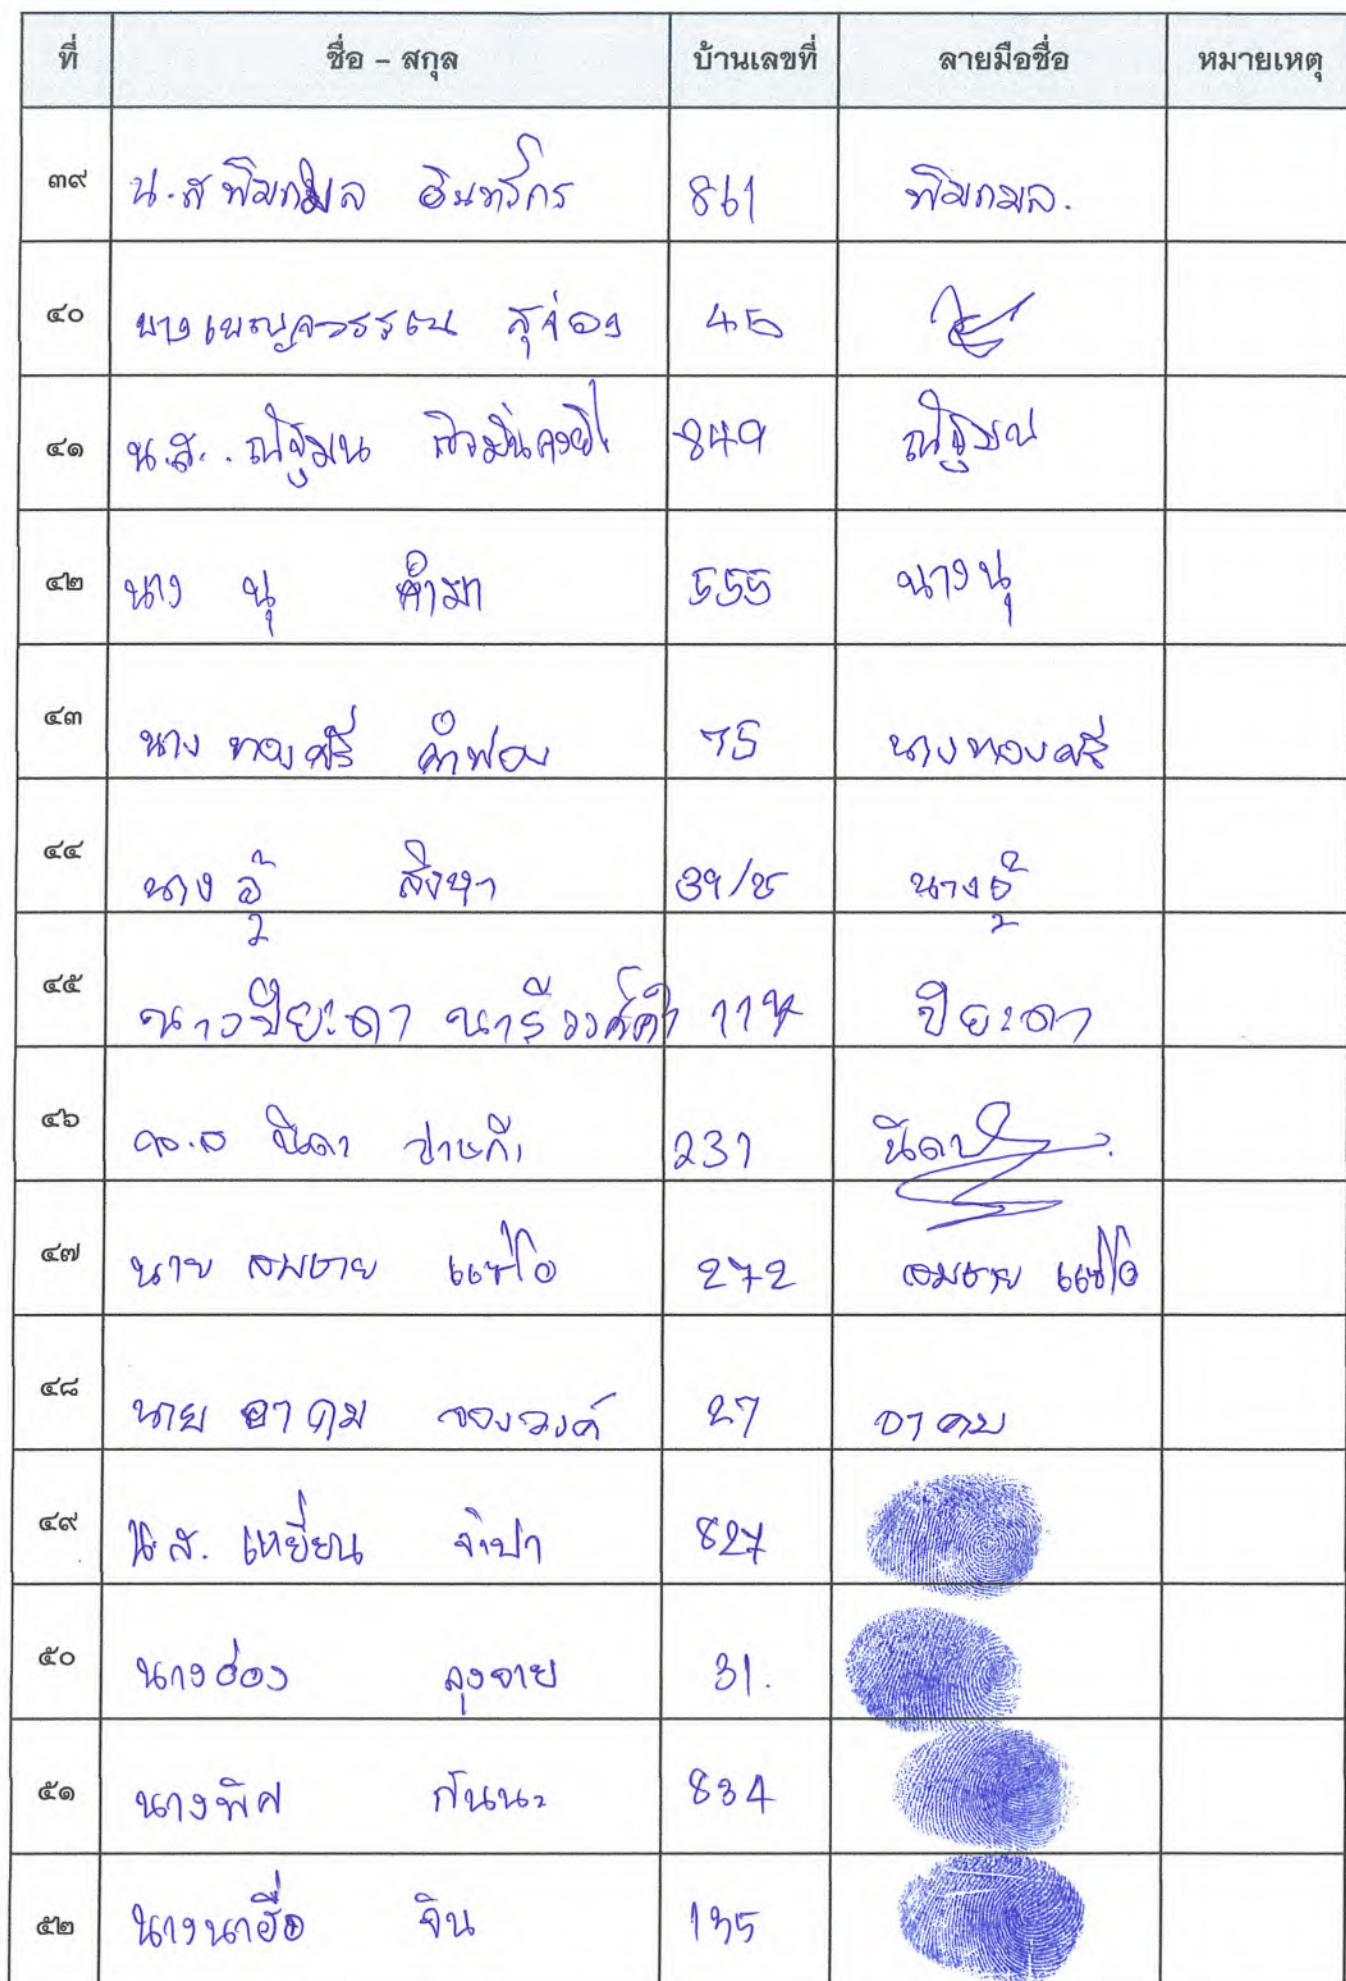 ที่ ชื่อ - สกุล บ้านเลขที่ ลายมือชื่อ หมายเหตุ
๓๙ น.ส พิมกมล อินทร์กร 861 พิมกมล.
๔๐ นางเบญจวรรณ สุจ่อง 45
๔๑ น.ส. ณัฐมน 849 ณัฐมน
๔๒ นาง นุ คำมา 555 นางนุ
๔๓ นาง ทองศรี คำฟอง 75 นางทองศรี
๔๔ นาง อู๊ สิงหา นางอู๊
๔๕ นางปิยะดา นารีวงค์คำ 117 ปิยะดา
๔๖ นิดา 231 นิดา
๔๗ นาย สมชาย แซ่โอ 272 สมชาย แซ่โอ
๔๘ นาย อาคม จองวงค์ 27 อาคม
๔๙ น.ส. เหยี่ยน จำปา 827
๕๐ นางฮ่อง ลุงจาย 31.
๕๑ นางพิศ กันนะ 834
๕๒ นางนาฮือ จิน 135